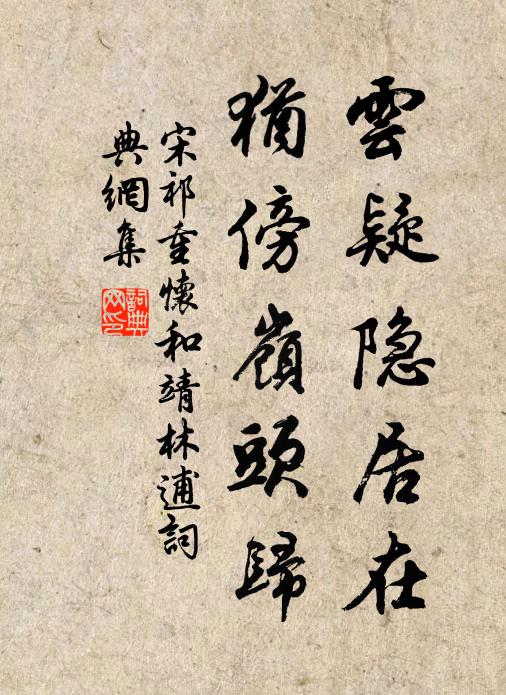 雲疑隐居在
猶傍嶺頭歸
宋祁重懷和靖林逋詞
典網集
詞典
网印